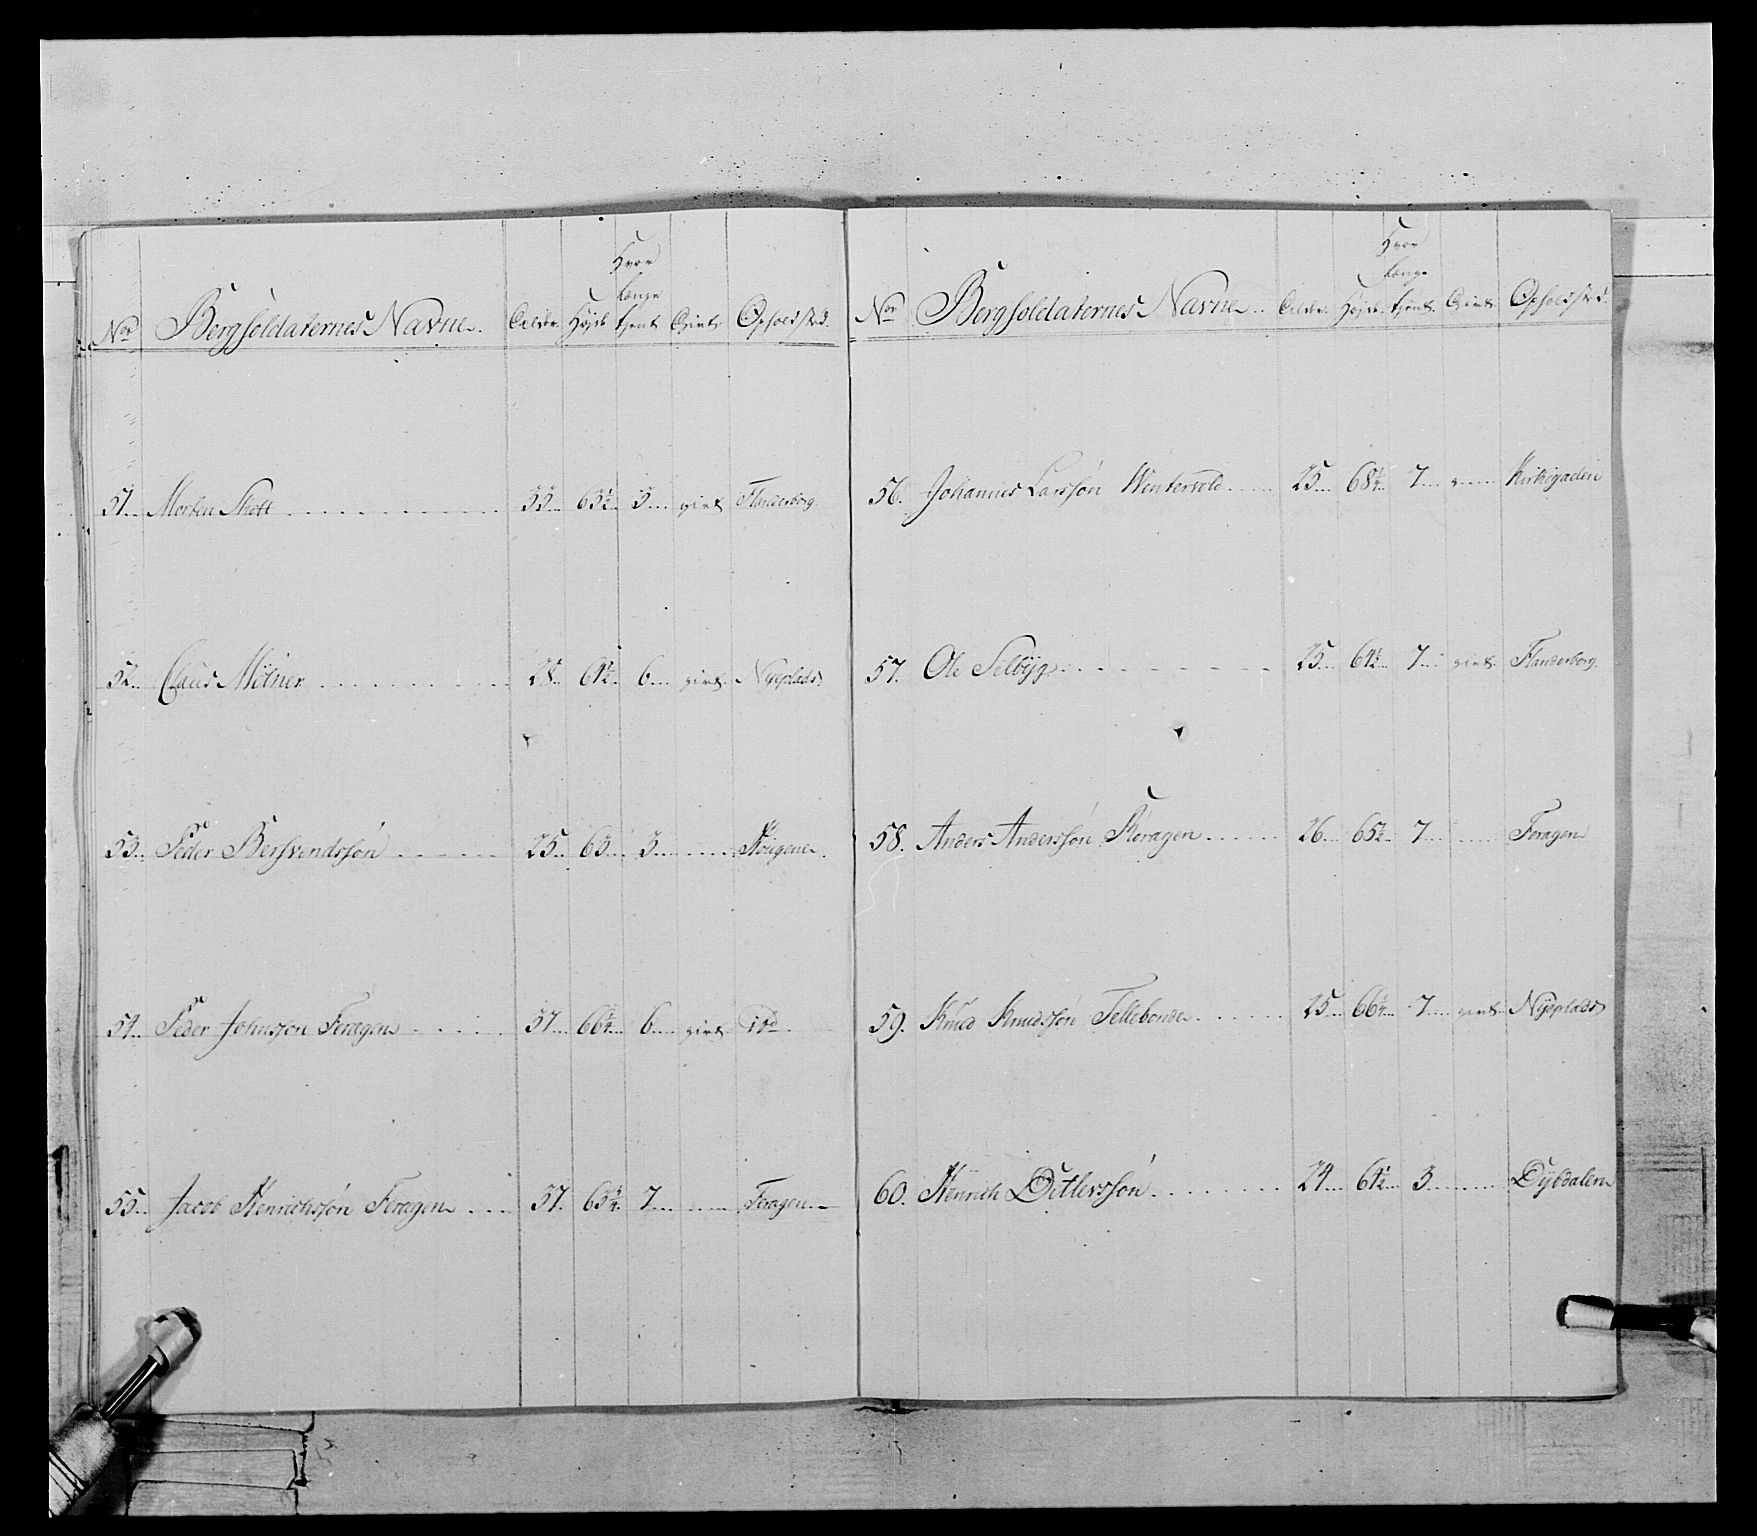 No Bergsoldaternes Navne. Alder. Höjde Hvor længe tjent Givt Opholdsted.
51... Morten Skott 33... 65½... 5.... givt Flanderborg.
52... Claus Mölner 28... 64½... 6.... givt Nÿeplads
53... Peder Bersvendssön 25... 63.... 3....
54... Peder Johnssön Feragen 37.... 66¼... 6.... givt
55... Jacob Henrichsön Feragen 37. 65¼. 7.... Feragen.
No Bergsoldaternes Navne Alder. Höjde. Hvor længe tjent. Givt. Opholdsted.
56. Johannes Larssön Wintervold 25... 68¼... 7... g Kirkegaden
57. Ole Selbÿg 25... 64½.. 7... givt Flanderborg.
58. Anders Anderssön Feragen 26... 65½... 7.... Feragen
59. Knud Knudssön Tellebonde 25... 66¼... 7.... givt Nÿeplads
60. Henrich Ditlevssön 24... 64½... 3..... Dÿbdalen